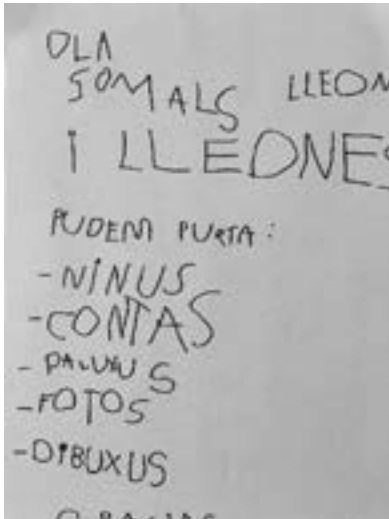 OLA
SOM ALS LLEON
I LLEONES
PUDEM PURTA:
- NINUS
- CONTAS
- PALUXUS
- FOTOS
- DIBUXUS